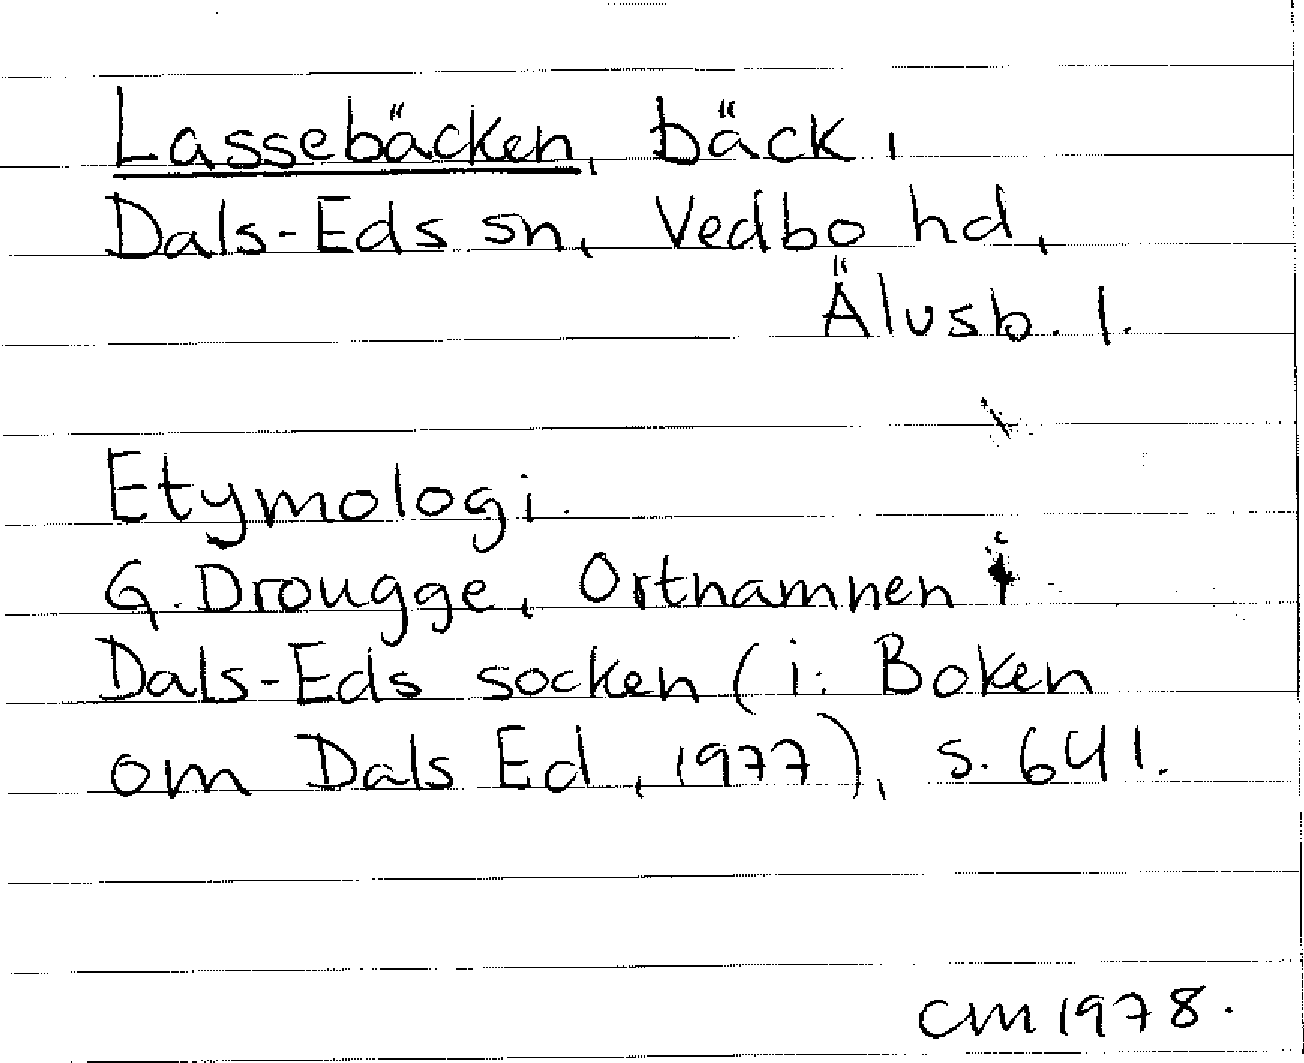 Lassebäcken, bäck,
Dals-Eds sn, Vedbo hd,
Älvsb. l.
Etymologi.
G. Drougge, Ortnamnen i
Dals-Eds socken (i: Boken
om Dals Ed, 1977), s. 641.
CM 1978.